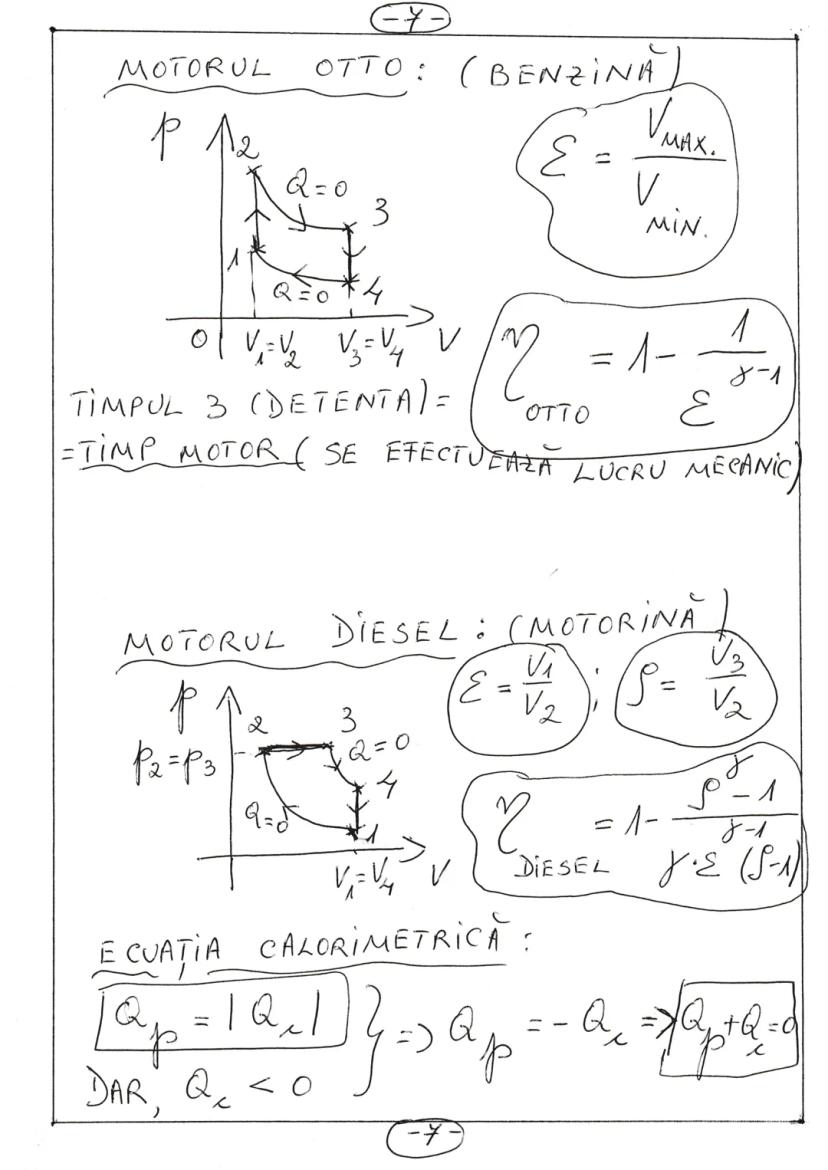 -7-
MOTORUL OTTO: (BENZINĂ)
p
2
Q=0
3
1
Q=0
4
0 V₁=V₂ V₃=V₄ V
ε = V_MAX. / V_MIN.
η_OTTO = 1 - 1/ε^(γ-1)
TIMPUL 3 (DETENTA)=
=TIMP MOTOR (SE EFECTUEAZĂ LUCRU MECANIC)
MOTORUL DIESEL: (MOTORINĂ)
ε = V₁/V₂ ; ρ = V₃/V₂
p
2 3
p₂=p₃
Q=0
4
Q=0
1
V₁=V₄ V
η_DIESEL = 1 - (ρ^γ - 1)/(γ·ε^(γ-1) (ρ-1))
ECUAȚIA CALORIMETRICĂ:
Q_p = |Q_c| } => Q_p = -Q_c => Q_p+Q_c=0
DAR, Q_c < 0
-7-